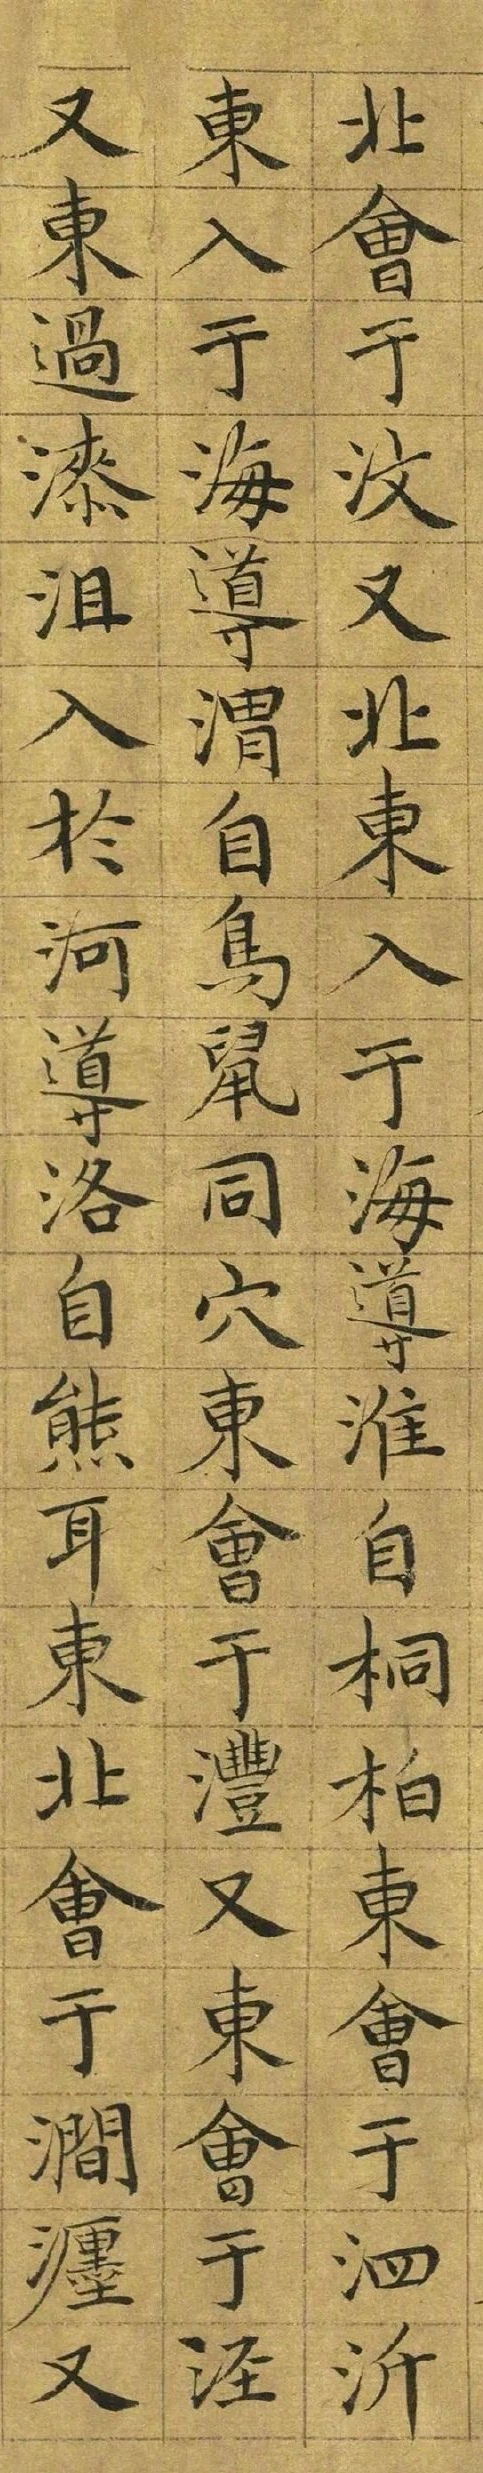 北會于汶又北東入于海導淮自桐柏東會于泗沂
東入于海導渭自鳥鼠同穴東會于灃又東會于涇
又東過漆沮入於河導洛自熊耳東北會于澗瀍又